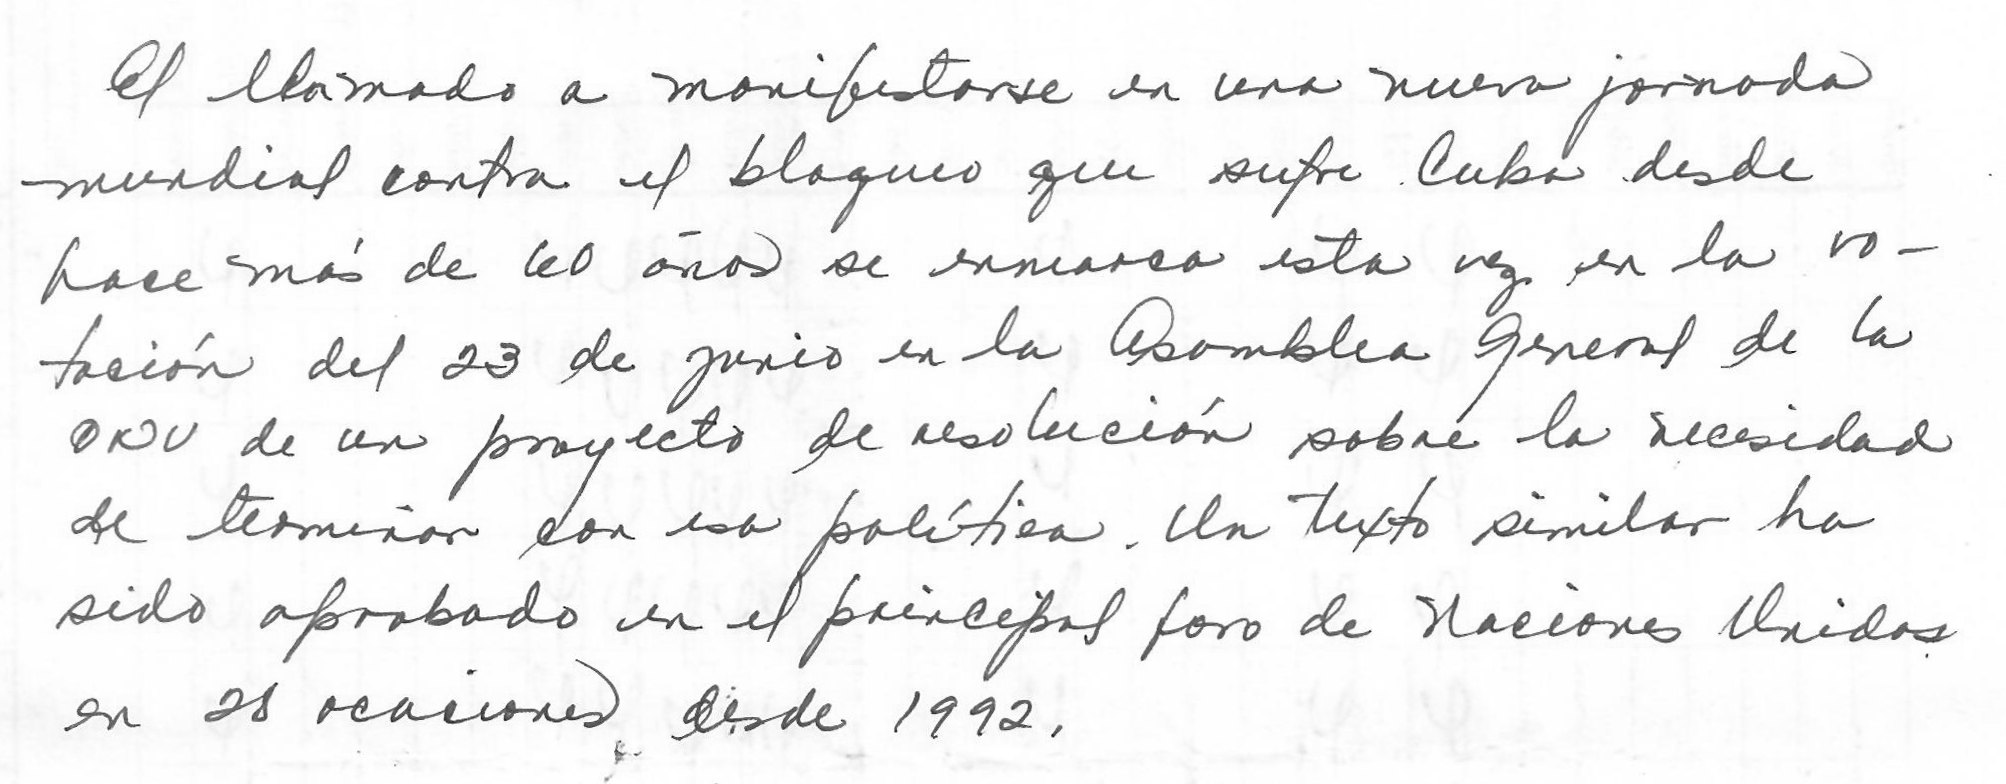 El llamado a manifestarse en una nueva jornada
mundial contra el bloqueo que sufre Cuba desde
hace más de 60 años se enmarca esta vez en la vo-
tación del 23 de junio en la Asamblea General de la
ONU de un proyecto de resolución sobre la necesidad
de terminar con esa política. Un texto similar ha
sido aprobado en el principal foro de Naciones Unidas
en 28 ocaciones desde 1992.